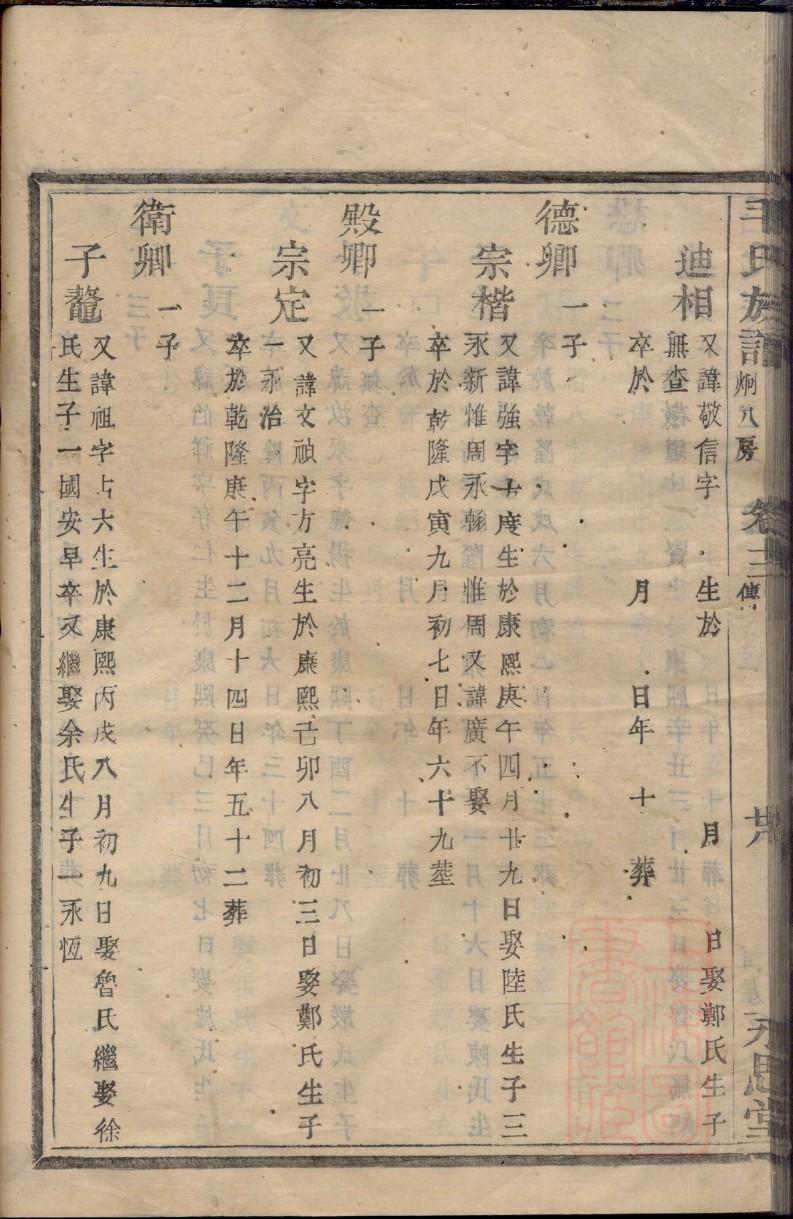 毛氏族譜 炯八房 卷三 傳 廿八 永思堂
迪相 又諱敬信字 生於 月 日娶鄭氏生子
無查
卒於 月 日年 十 葬
德卿 一子
宗楷 又諱強字十度生於康熙庚午四月廿九日娶陸氏生子三
永新惟周永翰惟周又諱廣不娶
卒於乾隆戊寅九月初七日年六十九葬
殿卿 一子
宗定 又諱文禎字方亮生於康熙己卯八月初三日娶鄭氏生子
一永治
卒於乾隆庚午十二月十四日年五十二葬
衛卿 一子
子鼇 又諱祖字占六生於康熙丙戌八月初九日娶魯氏繼娶徐
氏生子一國安早卒又繼娶余氏生子一永恆